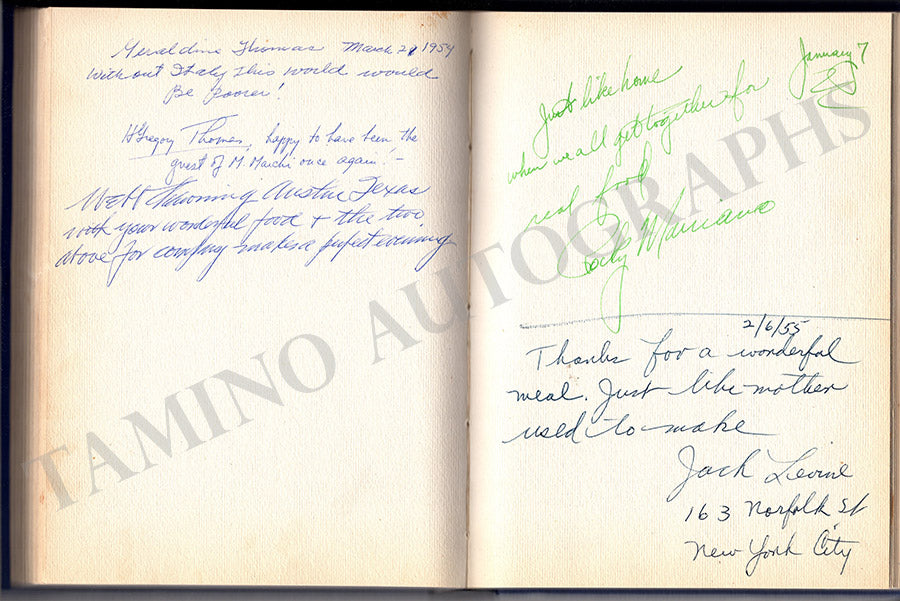 Geraldine Thomas March 21 1954
Without Italy this world would
Be Poorer!
H Gregory Thomas, happy to have been the
guest of M. Marchi once again! -
Austin Texas
with your wonderful food + the two
above for company makes a perfect evening
January 7
55
Just like home
when we all get together for
real food
Mariano
2/6/55
Thanks for a wonderful
meal. Just like mother
used to make
Jack Levine
163 Norfolk St
New York City
TAMINO AUTOGRAPHS